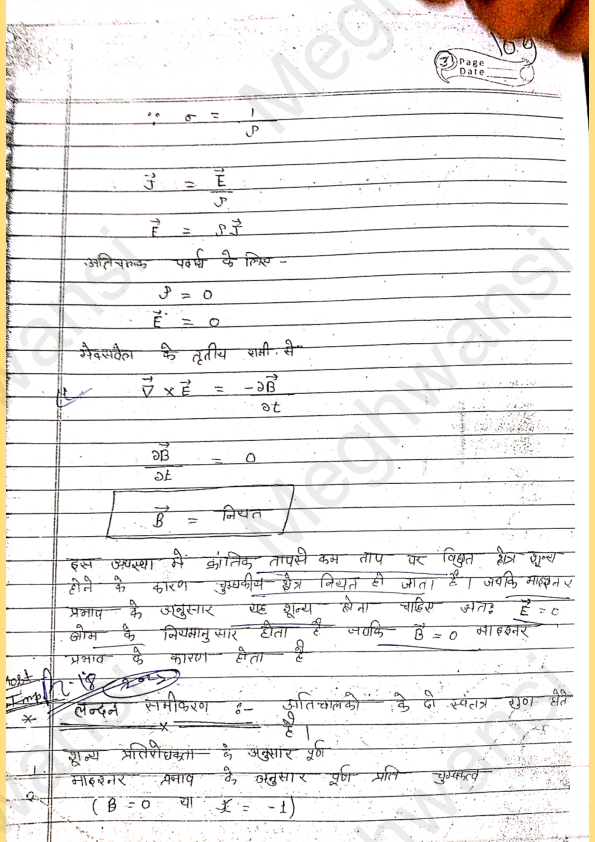 109
31 Page
Date
∵ σ = 1/ρ
J⃗ = E⃗/ρ
E⃗ = ρJ⃗
अतिचालक पदार्थ के लिए -
ρ = 0
E⃗ = 0
मेक्सवेल के तृतीय समी. से
∇⃗ × E⃗ = -∂B⃗/∂t
∂B⃗/∂t = 0
B⃗ = नियत
इस अवस्था में क्रांतिक तापसे कम ताप पर विद्युत क्षेत्र शून्य
होने के कारण चुम्बकीय क्षेत्र नियत हो जाता है । जबकि माइश्नर
प्रभाव के अनुसार यह शून्य होना चाहिए अतः E⃗ = 0
ओम के नियमानुसार होता है जबकि B⃗ = 0 माइश्नर
प्रभाव के कारण होता है
Most Imp
* लन्दन समीकरण :- अतिचालको के दो स्वतंत्र गुण होते
है ।
1. शून्य प्रतिरोधकता के अनुसार पूर्ण
2. माइश्नर प्रभाव के अनुसार पूर्ण प्रति चुम्बकत्व
( B = 0 या χ = -1 )
Meghwansi
Meghwansi
Meghwansi